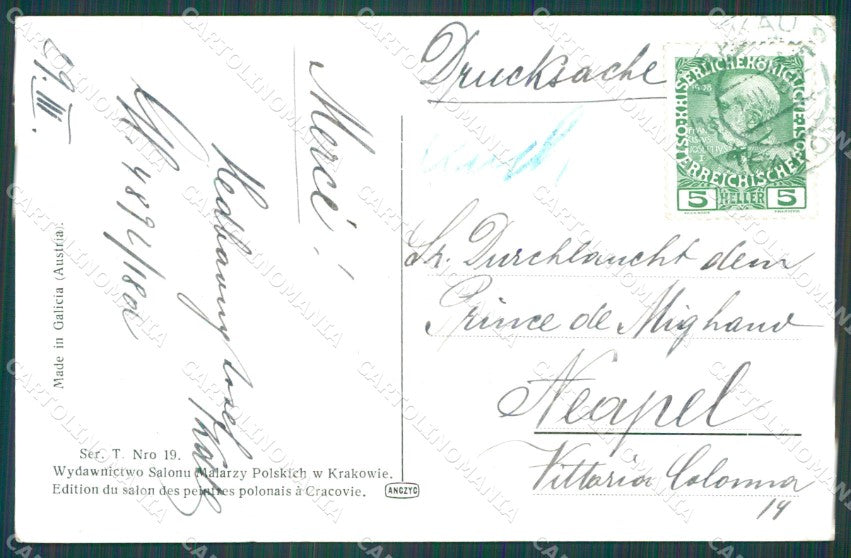 29.III.
Mercé!
4892/182
Made in Galicia (Austria).
Ser. T. Nro 19.
Wydawnictwo Salonu Malarzy Polskich w Krakowie.
Edition du salon des peintres polonais à Cracovie.
ANCZYC
Drucksache
KAISERLICHE KÖNIGLICHE
ÖSTERREICHISCHE
5 HELLER 5
Sr. Durchlaucht dem
Prince de Mighano
Neapel
Vittoria Colonna
14
CARTOLINOMANIA